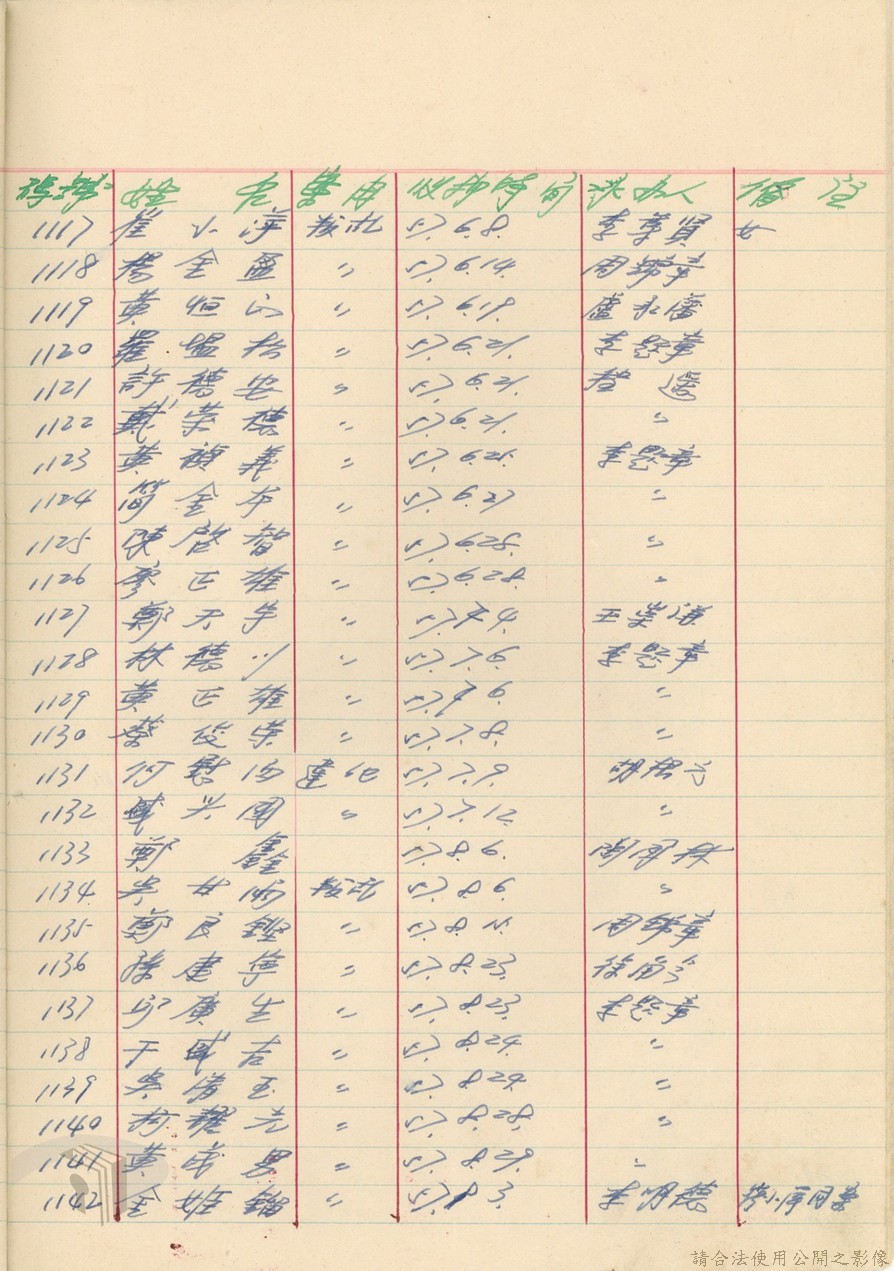 姓 名 案由 收押時間 承办人 備註
1117 崔小萍 叛亂 57.6.8. 李葉賢 女
1118 楊金盈 〃 57.6.14. 周錦章
1119 黃恒 〃 57.6.19. 盧永
1120 羅 〃 57.6.21. 李題章
1121 許穗安 〃 57.6.21.
1122 戴榮德 〃 57.6.21. 〃
1123 黃禎義 〃 57.6. 李題章
1124 簡金本 〃 57.6.27 〃
1125 陳啓智 〃 57.6.28. 〃
1126 廖正雄 〃 57.6.28. 〃
1127 鄭天 〃 57.7.4. 王榮
1128 林德川 〃 57.7.6. 李題章
1129 黃正雄 〃 57.7.6. 〃
1130 蔡俊榮 〃 57.7.8. 〃
1131 何 57.7.9. 胡
1132 盛興國 〃 57.7.12. 〃
1133 鄭鑫 57.8.6. 周
1134 吳女 叛亂 57.8.6. 〃
1135 鄭良鏗 〃 57.8. 周錦章
1136 孫建寧 〃 57.8.23. 徐
1137 廣生 〃 57.8.23. 李題章
1138 于威吉 〃 57.8.24. 〃
1139 吳清玉 〃 57.8.24. 〃
1140 柯耀光 〃 57.8.28. 〃
1141 黃成男 〃 57.8.29. 〃
1142 金姬鎦 〃 57. 3. 李明德 崔小萍同案
請合法使用公開之影像